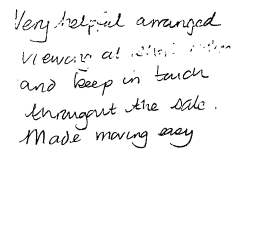 Very helpful arranged
viewing at short notice
and keep in touch
throughout the sale.
Made moving easy